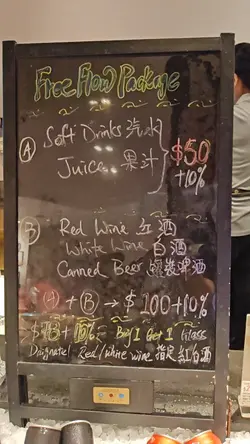 Free Flow Package
A Soft Drinks 汽水
Juice 果汁
$50
+10%
B Red Wine 紅酒
White Wine 白酒
Canned Beer 罐裝啤酒
A + B → $100+10%
+ 10% = Buy 1 Get 1 Glass
Red/White wine 指定紅白酒